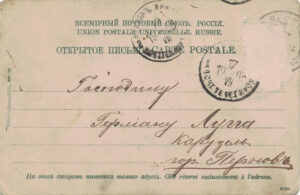 ВСЕМІРНЫЙ ПОЧТОВЫЙ СОЮЗЪ. РОССІЯ.
UNION POSTALE UNIVERSELLE. RUSSIE.
ОТКРЫТОЕ ПИСЬМО. CARTE POSTALE.
Господину
Герману Лугга
Карузель
гор. Перновъ
На этой сторонѣ пишется только адресъ. Côté réservé exclusivement à l'adresse.